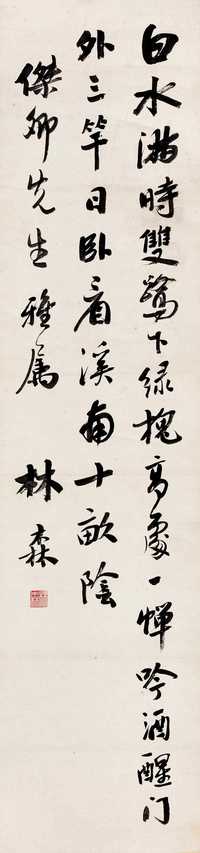 白水滿時雙鷺下綠槐高處一蟬吟酒醒门
外三竿日卧看溪南十畝陰
傑卿先生雅属 林森